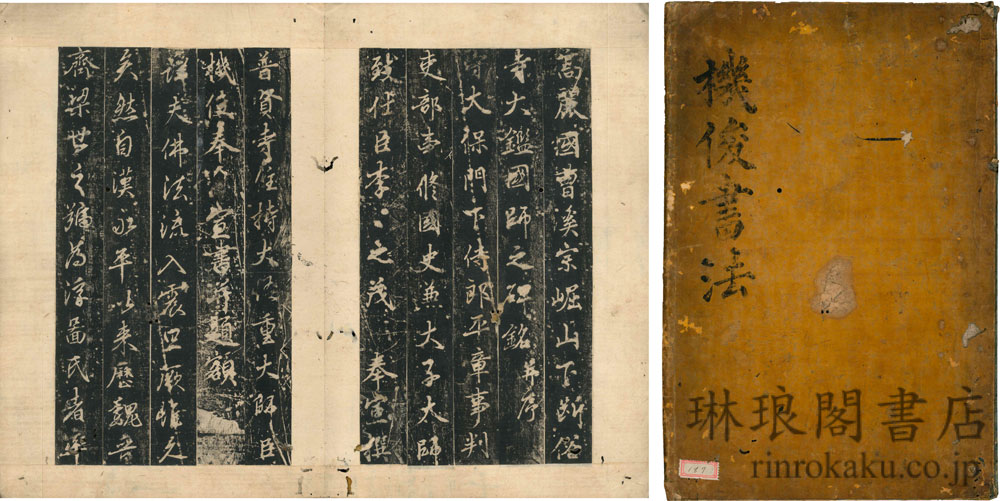 高麗國曹溪宗崛山下斷俗
寺大鑑國師之碑銘并序
大保門下侍郎平章事判
吏部事修國史兼大子大師
致仕臣李之茂奉宣撰
普賢寺住持大重大師臣
機俊奉宣書并題額
詳夫佛法流入震旦厥惟久
矣然自漢永平以來歷魏晉
齊梁世之號為浮圖氏者率
機俊書法
琳琅閣書店
rinrokaku.co.jp